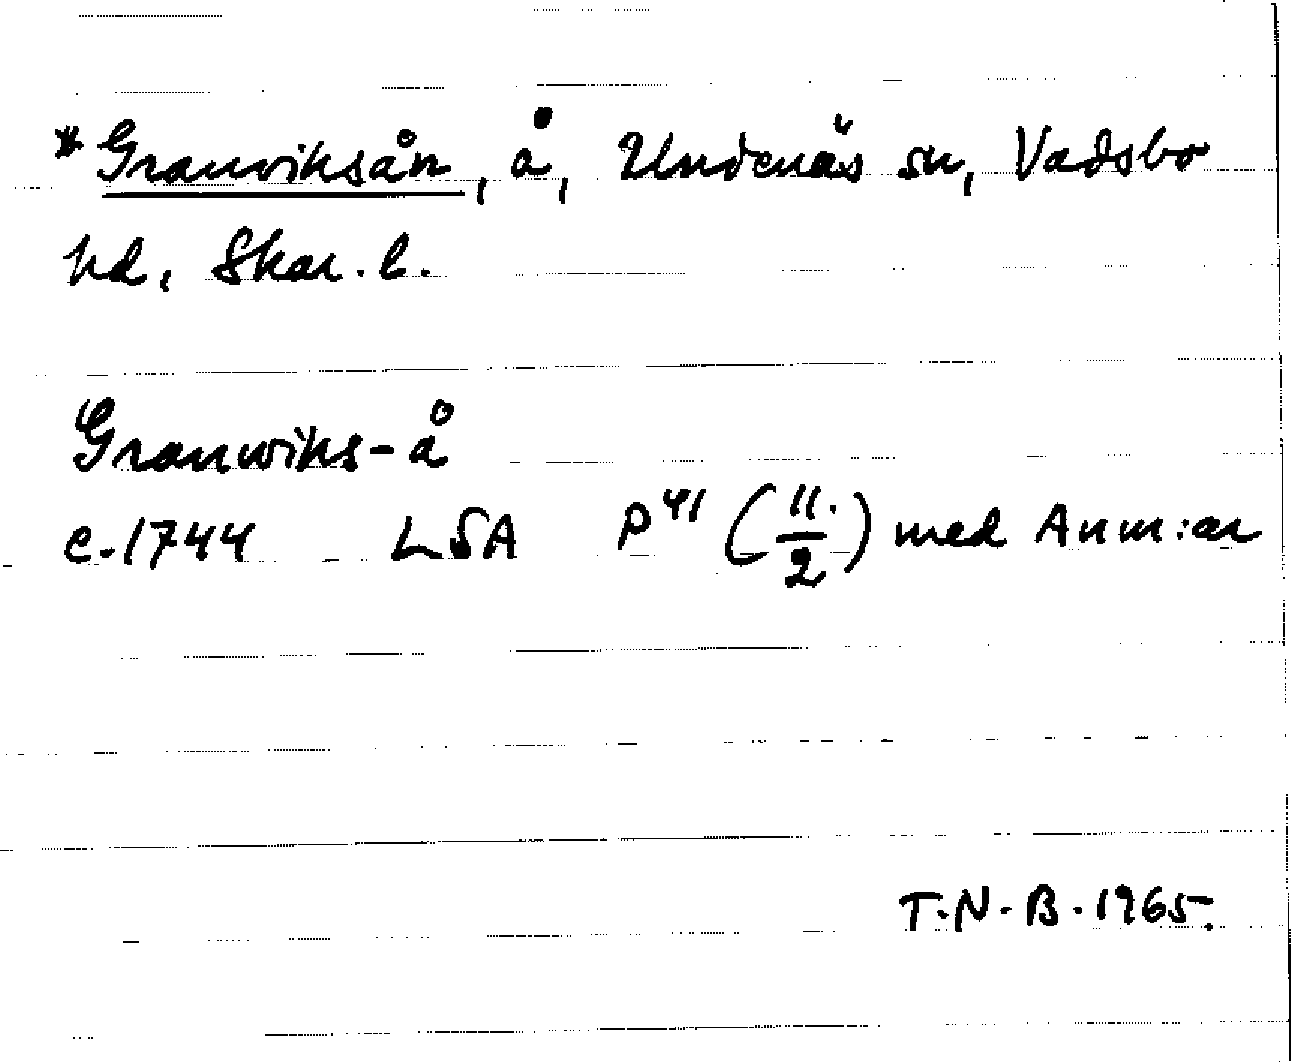 *Granviksån, å, Undenäs sn, Vadsbo
hd, Skar. l.
Granwiks-å
c. 1744 LSA P41 (11./2) med Anm:ar
T.N.B. 1965.